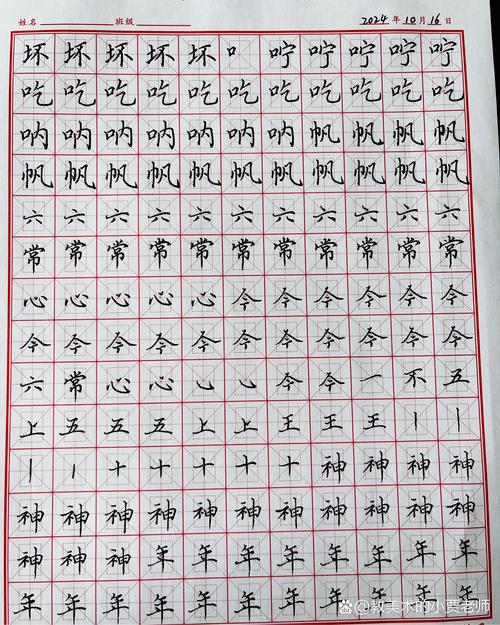 姓名 班级 2024年10月16日
坏坏坏坏坏口咛咛咛咛咛
吃吃吃吃吃吃吃吃吃吃吃
呐呐呐呐呐呐呐帆帆帆帆
帆帆帆帆帆帆帆帆帆帆帆
六六六六六六六六六六六
常常常常常常常常常常常
心心心心心今今今今今今
今今今今今今今今今今今
六常心心心心今今一不五
上五五五上上王王王丨丨
丨丨十十十十十神神神神
神神神神神神神神神神神
神神神年年年年年年年年
年年年年年年年年年年年
@教美术的小贾老师